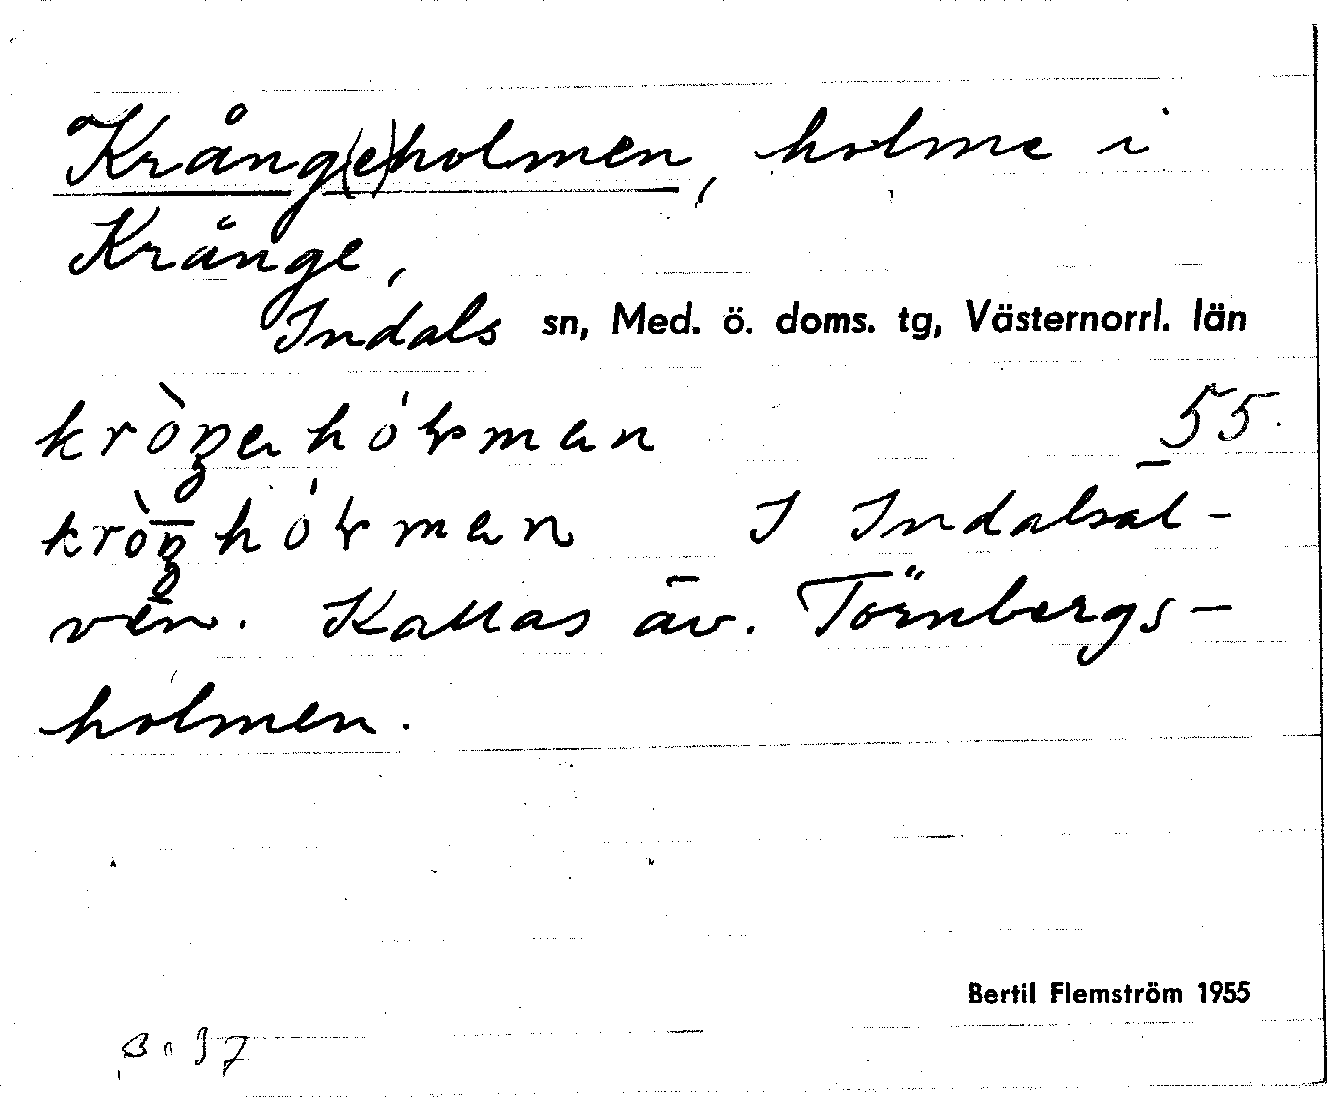 Krång(e)holmen, holme i
Krånge,
Indals sn, Med. ö. doms. tg, Västernorrl. län
55.
I Indalsäl-
ven. Kallas äv. Törnbergs-
holmen.
Bertil Flemström 1955